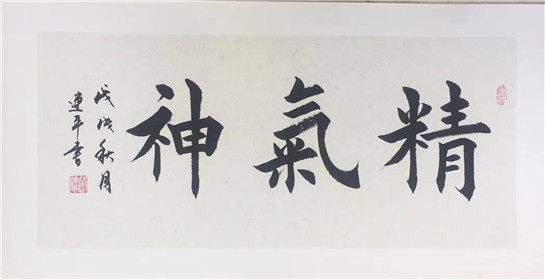 精氣神
戊戌秋月
連平書